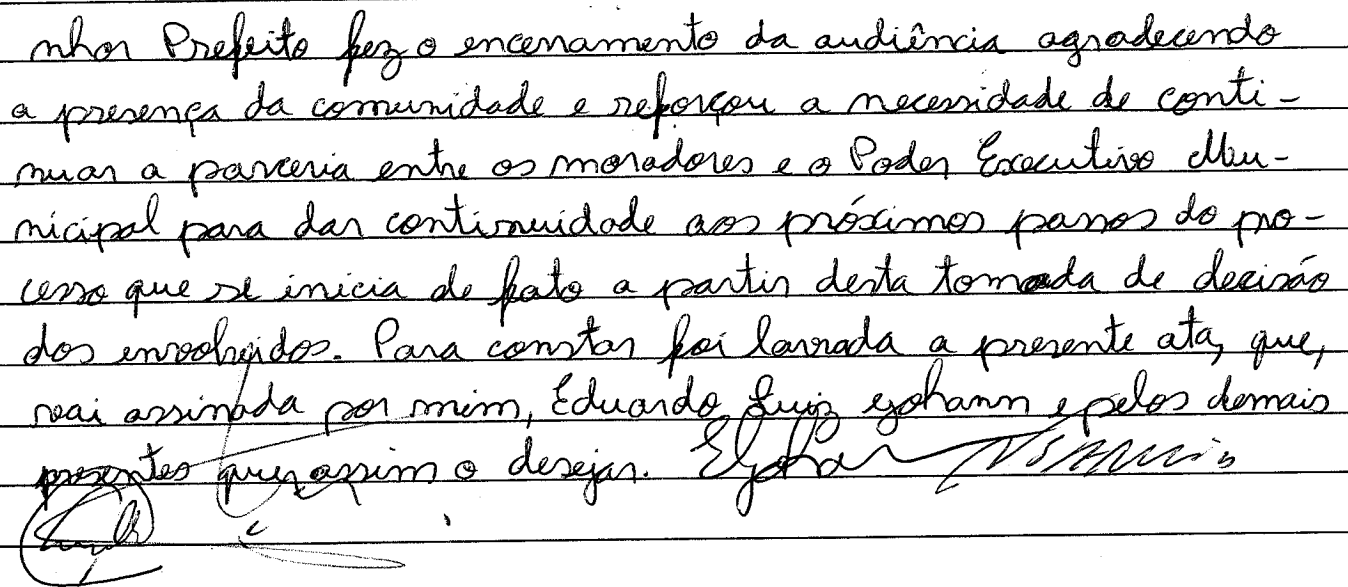 nhor Prefeito fez o encerramento da audiência agradecendo
a presença da comunidade e reforçou a necessidade de conti-
nuar a parceria entre os moradores e o Poder Executivo Mu-
nicipal para dar continuidade aos próximos passos do pro-
cesso que se inicia de fato a partir desta tomada de decisão
dos envolvidos. Para constar foi lavrada a presente ata, que,
vai assinada por mim, Eduardo Luiz Johann e pelos demais
presentes que assim o desejar.